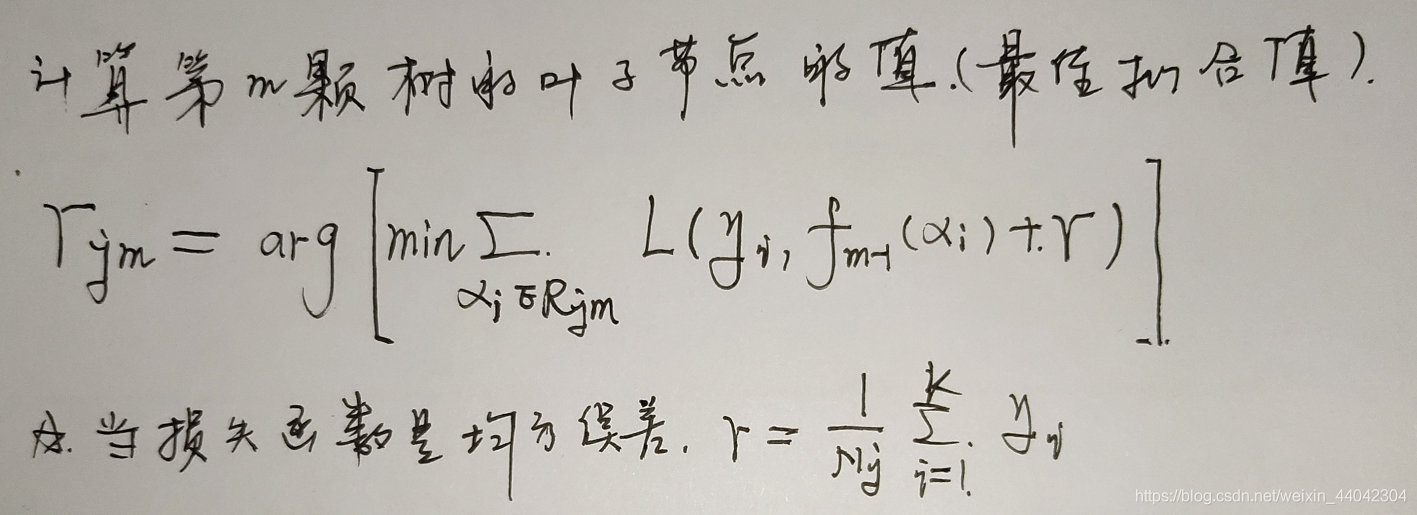 计算第m颗树的叶子节点的值.(最佳拟合值).
r_{jm} = arg [ min Σ_{x_i ∈ R_{jm}} L(y_i, f_{m-1}(x_i) + r) ]
当损失函数是均方误差. r = \frac{1}{N_j} Σ_{i=1}^{K} y_i
https://blog.csdn.net/weixin_44042304